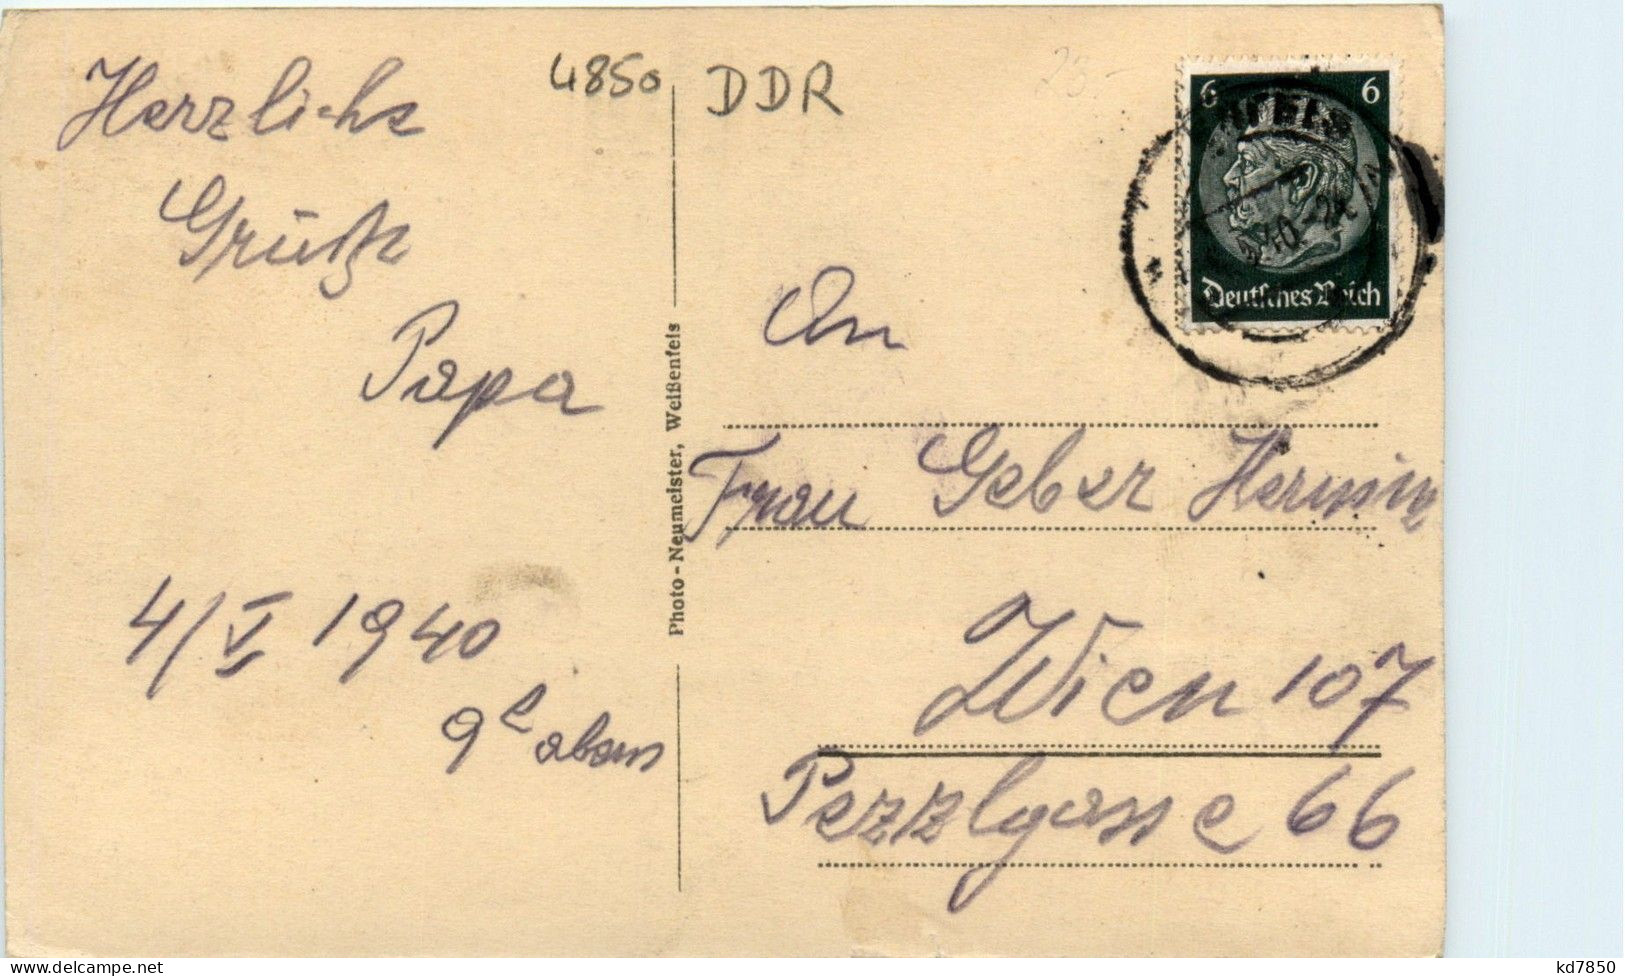 4850 DDR
23.-
Herzliche
Grüße
Papa
4/V 1940
9h abens
Photo-Neumeister, Weißenfels
6 6
Deutsches Reich
40.-24
An
Frau Geber Hermine
Wien 107
Pezzlgasse 66
delcampe.net
kd7850